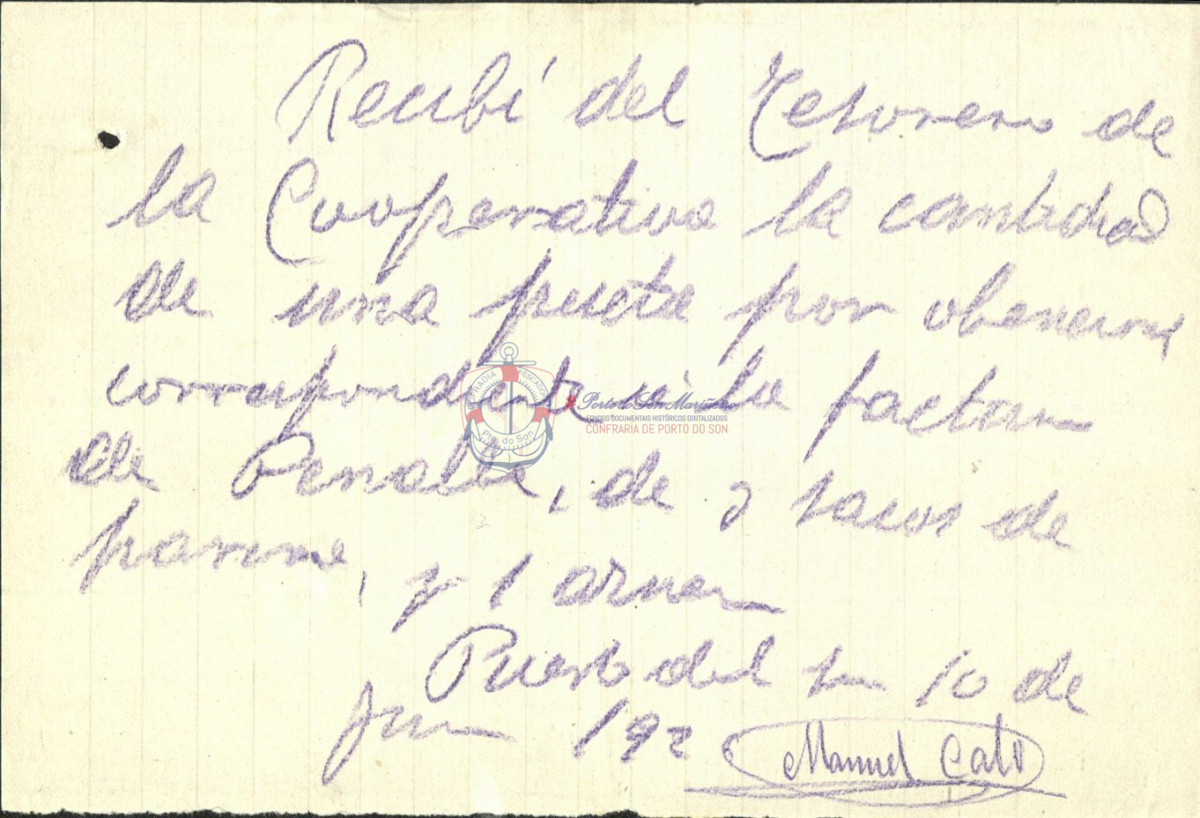 Recibí del Tesorero de
la Cooperativa la cantidad
de una peseta por
correspondiente a la factura
de Penalba, de 2 sacos de
y 1
Puerto del Son 10 de
192
Manuel Cato
COFRADIA PESCADORES
Pto. do Son
Porto do Son Mariñeiro
FONDOS DOCUMENTAIS HISTÓRICOS DIXITALIZADOS
CONFRARÍA DE PORTO DO SON